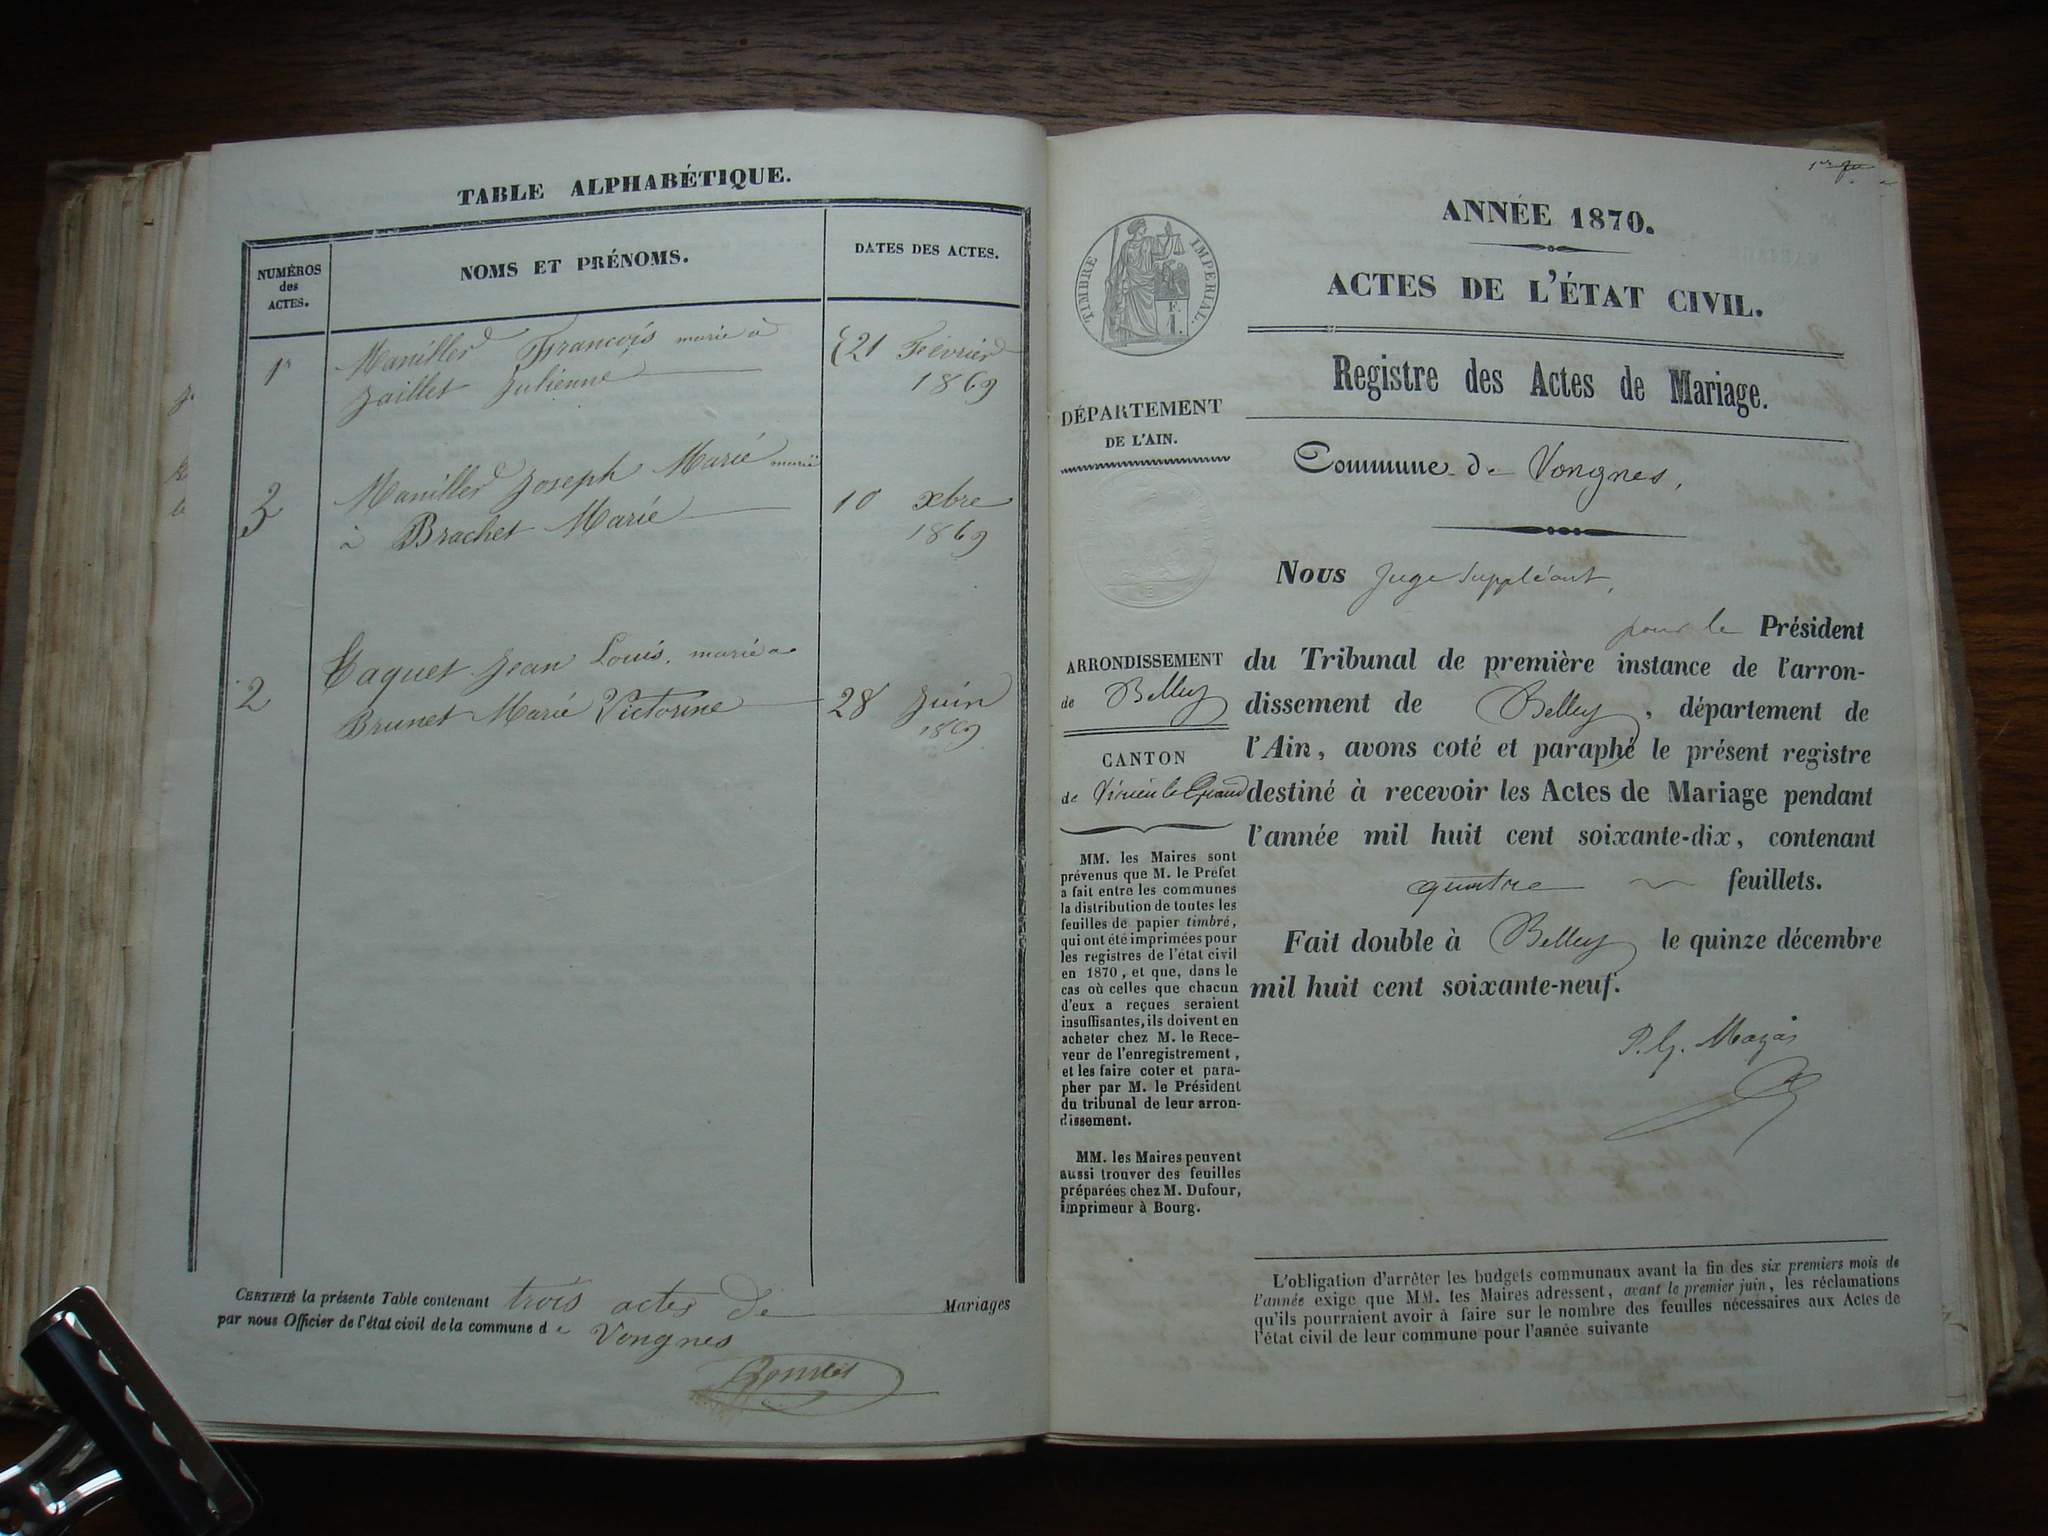 TABLE ALPHABÉTIQUE.
NUMÉROS
des
ACTES.
NOMS ET PRÉNOMS.
DATES DES ACTES.
1r Maniller François marié à {21 Février
Jaillet Julienne 1869
3 Maniller Joseph Marié marié 10 xbre
à Brachet Marie 1869
2 Taquet Jean Louis, marié a
Brunet Marie Victorine 28 Juin
1869
CERTIFIÉ la présente Table contenant trois actes de Mariages
par nous Officier de l'état civil de la commune de Vongnes
ANNÉE 1870.
ACTES DE L'ÉTAT CIVIL.
TIMBRE IMPERIAL.
F.
1.
Registre des Actes de Mariage.
DÉPARTEMENT
DE L'AIN.
Commune de Vongnes,
Nous Juge Suppléant,
pour le Président
du Tribunal de première instance de l'arron-
dissement de Belley, département de
l'Ain, avons coté et paraphé le présent registre
destiné à recevoir les Actes de Mariage pendant
l'année mil huit cent soixante-dix, contenant
quatre feuillets.
Fait double à Belley le quinze décembre
mil huit cent soixante-neuf.
P. G. Mazas
ARRONDISSEMENT
de Belley
CANTON
de Virieu le Grand
MM. les Maires sont
prévenus que M. le Préfet
a fait entre les communes
la distribution de toutes les
feuilles de papier timbré,
qui ont été imprimées pour
les registres de l'état civil
en 1870, et que, dans le
cas où celles que chacun
d'eux a reçues seraient
insuffisantes, ils doivent en
acheter chez M. le Rece-
veur de l'enregistrement,
et les faire coter et para-
pher par M. le Président
du tribunal de leur arron-
dissement.
MM. les Maires peuvent
aussi trouver des feuilles
préparées chez M. Dufour,
imprimeur à Bourg.
L'obligation d'arrêter les budgets communaux avant la fin des six premiers mois de
l'année exige que MM. les Maires adressent, avant le premier juin, les réclamations
qu'ils pourraient avoir à faire sur le nombre des feuilles nécessaires aux Actes de
l'état civil de leur commune pour l'année suivante